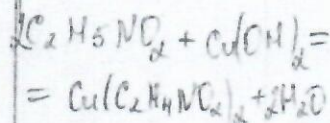 2C₂H₅NO₂ + Cu(OH)₂ =
= Cu(C₂H₄NO₂)₂ + 2H₂O